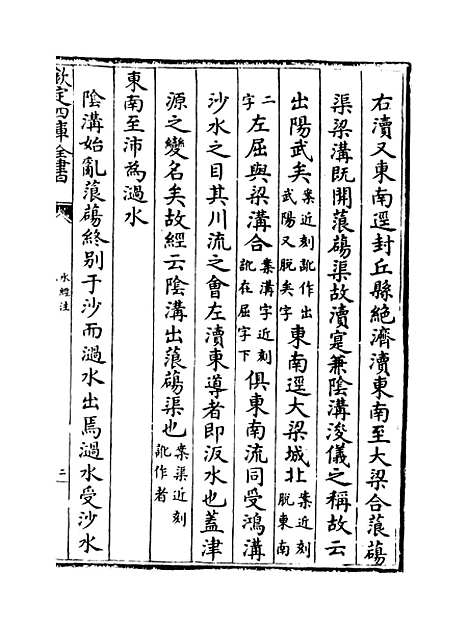 右瀆又東南逕封丘縣絶濟瀆東南至大梁合蒗蕩
渠梁溝既開蒗蕩渠故瀆寔兼陰溝浚儀之稱故云
出陽武矣案近刻訛作出武陽又脱矣字東南逕大梁城北案近刻脱東南
二字左屈與梁溝合案溝字近刻訛在屈字下俱東南流同受鴻溝
沙水之目其川流之會左瀆東導者即汳水也蓋津
源之變名矣故經云陰溝出蒗蕩渠也案渠近刻訛作者
東南至沛為濄水
陰溝始亂蒗蕩終别于沙而濄水出焉濄水受沙水
欽定四庫全書
水經注
二